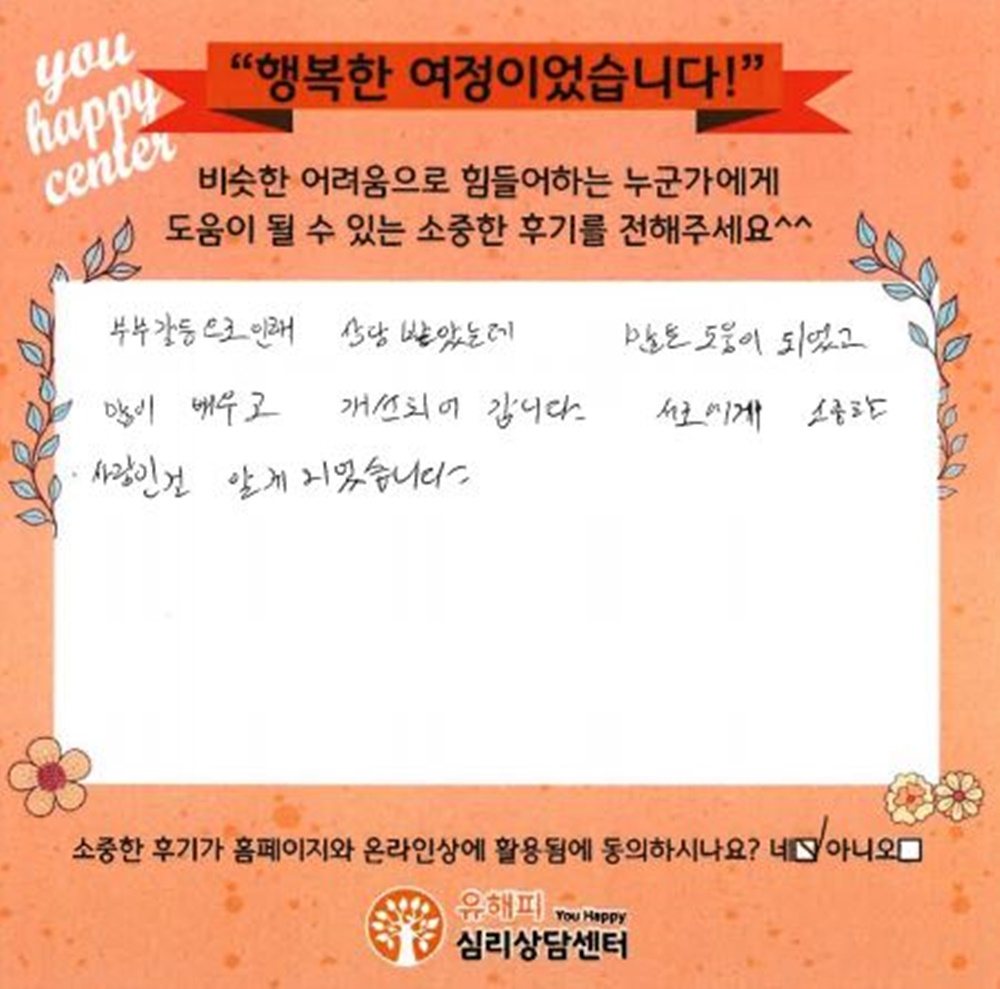 you
happy
center
“행복한 여정이었습니다!”
비슷한 어려움으로 힘들어하는 누군가에게
도움이 될 수 있는 소중한 후기를 전해주세요^^
부부갈등으로인해 상담 받았는데 많은 도움이 되었고
많이 배우고 개선되어 갑니다. 서로에게 소중한
사람인걸 알게 되었습니다.
소중한 후기가 홈페이지와 온라인상에 활용됨에 동의하시나요? 네 아니오
유해피 You Happy
심리상담센터